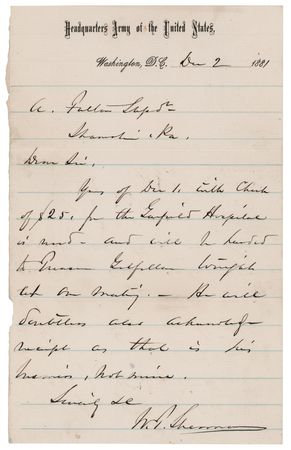 Headquarters Army of the United States,
Washington, D.C. Dec 2 1881
A. Fulton Supdt
Shamokin, Pa.
Dear Sir,
Yrs of Dec 1, with Check
of $25. for the Garfield Hospital
is recd - and will be handed
to Treasurer Gilfillan tonight
at our meeting. - He will
doubtless also acknowledge
receipt as that is his
business, not mine.
Sincerely &c
W. T. Sherman